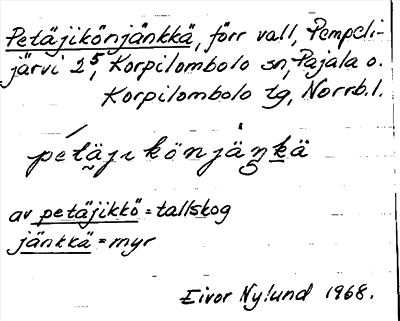 Petäjikönjänkkä, förr vall, Pempeli-
järvi 2⁵, Korpilombolo sn, Pajala o.
Korpilombolo tg, Norrb. l.
petäjı könjäŋkä
av petäjikkö = tallskog
jänkkä = myr
Eivor Nylund 1968.